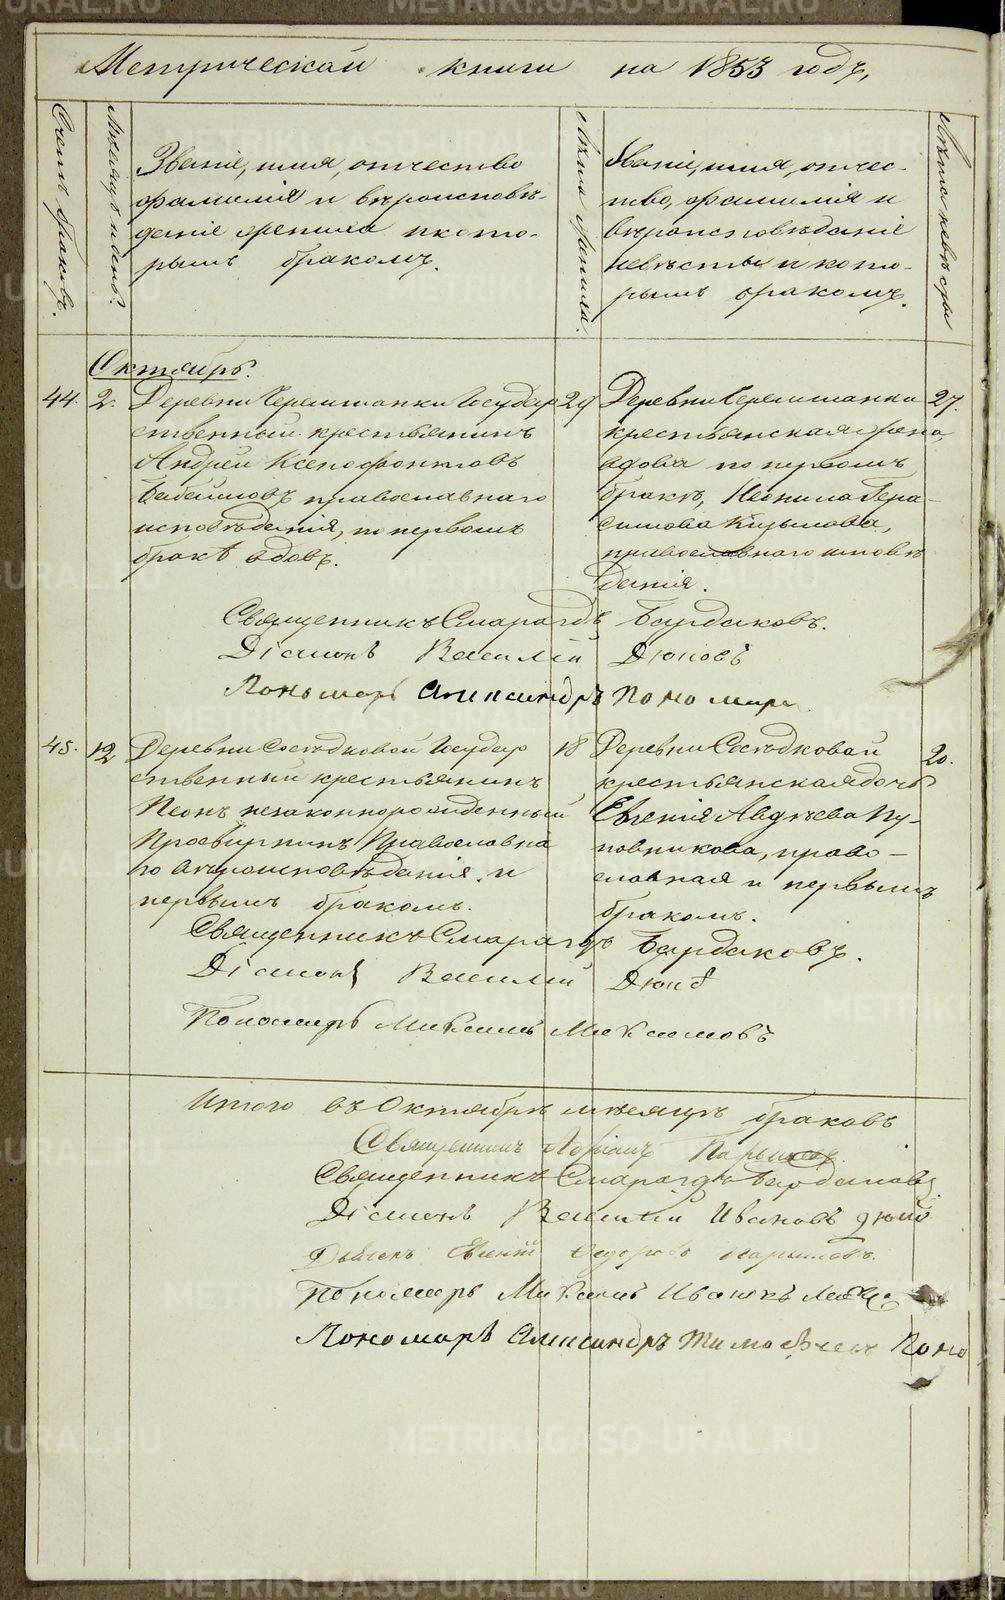 Метрической книги на 1853 годъ,
Счетъ браковъ.
Мѣсяцъ и день.
Званіе, имя, отчество
фамилія и вѣроисповѣ-
даніе жениха и кото-
рымъ бракомъ.
Лѣта жениха.
Званіе, имя, отчес-
тво, фамилія и
вѣроисповѣданіе
невѣсты и кото-
рымъ бракомъ.
Лѣта невѣсты
Октябрь.
44. 2. Деревни Черемшанки Государ
ственный крестьянинъ
Андрей Ксенофонтовъ
православнаго
исповѣданія, по первомъ
бракѣ вдовъ.
29
Деревни Черемшанки
крестьянская жена,
вдова по первомъ
бракѣ, Неонила Гера-
симова
православнаго исповѣ
данія.
27.
Священникъ Смарагдъ Бардаковъ.
Діаконъ Василій Дюковъ
Пономарь Александръ Пономарн
45. 12 Деревни Сосѣдковой Государ
ственный крестьянинъ
незаконнорожденный
Просвирнинъ Православна
го вѣроисповѣданія и
первымъ бракомъ.
18
Деревни Сосѣдковой
крестьянская дочь
Евгенія Авдѣева Пу-
повникова, право-
славная и первымъ
бракомъ.
20.
Священникъ Смарагдъ Бардаковъ.
Діаконъ Василій
Пономарь Максимъ Максимовъ
Итого въ Октябрѣ мѣсяцѣ браковъ
Священникъ Адріанъ
Священникъ Смарагдъ Бардаковъ
Діаконъ Василій Ивановъ
Діаконъ
Пономарь Максимъ
Пономарь Александръ Тимофѣевъ Поно
METRIKI.GASO-URAL.RU